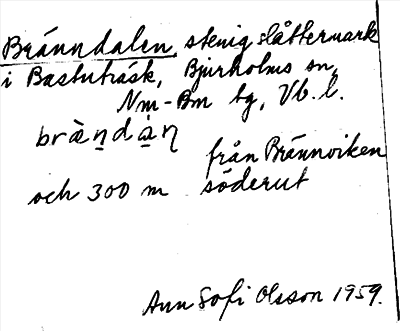 Bränndalen, stenig slåttermark
i Bastuträsk, Bjurholms sn,
Nm-Bm tg, Vb. l.
brä̀n̠dàn̠
från Brännviken
och 300 m söderut
Ann Sofi Olsson 1959.